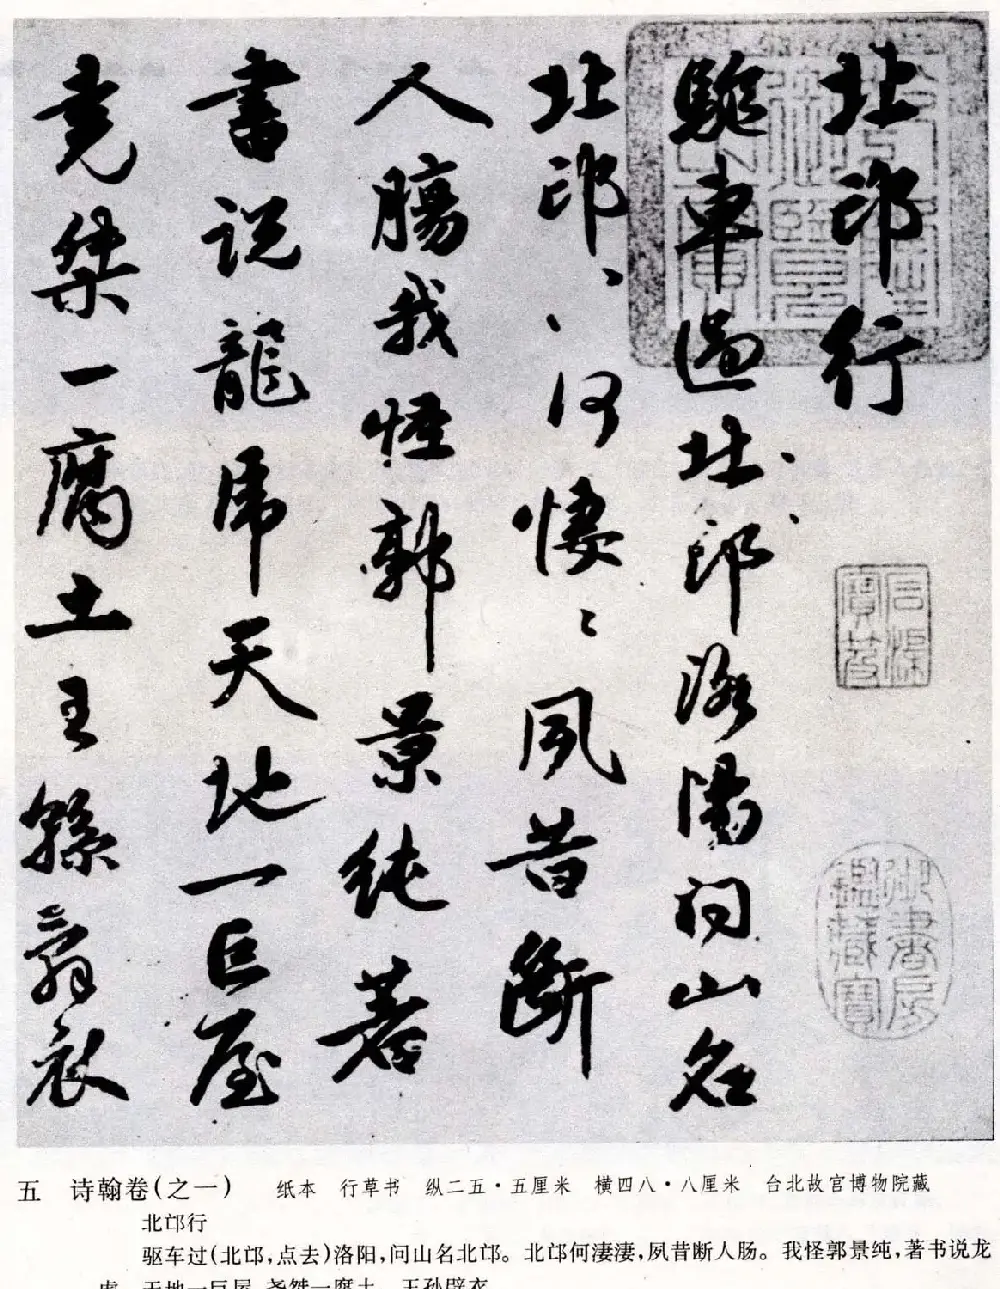 北邙行
駈車過北邙洛陽问山名
北邙、、何悽、夙昔斷
人膓我怪郭景纯著
書说龍虎天地一巨屋
堯桀一腐土王孫襞衣
乾隆御覽之寶
石渠寶笈
御書房鑑藏寶
五 诗翰卷(之一) 纸本 行草书 纵二五·五厘米 横四八·八厘米 台北故宫博物院藏
北邙行
驱车过(北邙,点去)洛阳,问山名北邙。北邙何淒淒,夙昔断人肠。我怪郭景纯,著书说龙
虎。天地一巨屋,尧桀一腐土。王孙襞衣